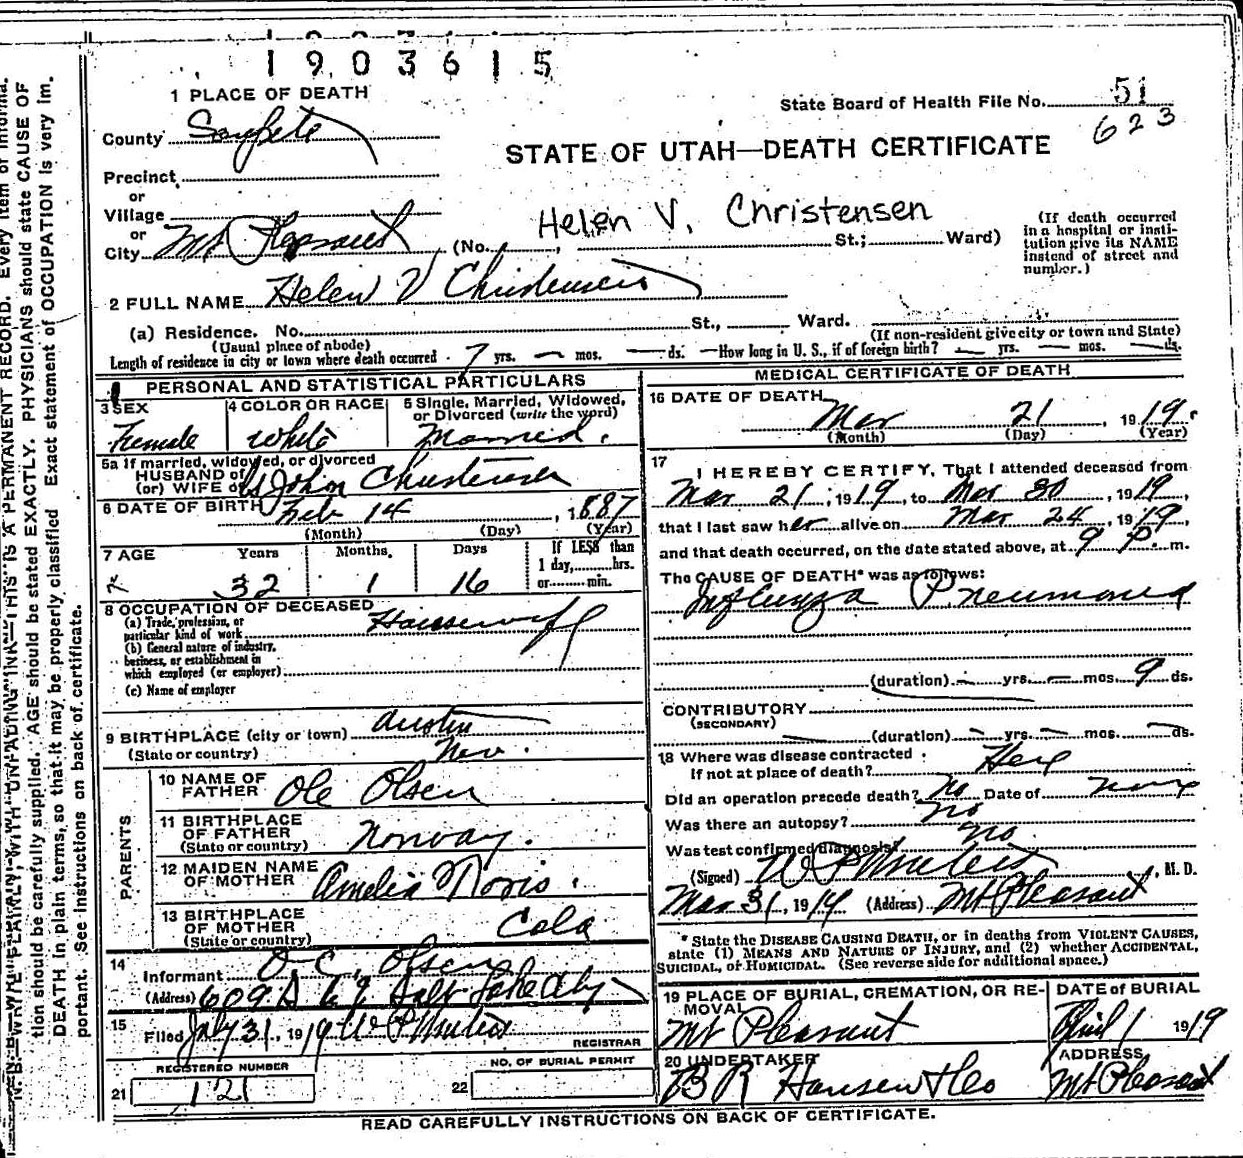 1903615
1 PLACE OF DEATH
State Board of Health File No. 51
623
County Sanpete
STATE OF UTAH—DEATH CERTIFICATE
Precinct
or
Village
or
City Mt Pleasant (No. St.; Ward)
Helen V. Christensen
(If death occurred in a hospital or insti-
tution give its NAME
instead of street and
number.)
2 FULL NAME Helen V Christensen
(a) Residence. No. St., Ward.
(Usual place of abode) (If non-resident give city or town and State)
Length of residence in city or town where death occurred 7 yrs. — mos. — ds. —How long in U. S., if of foreign birth? — yrs. — mos. — ds.
PERSONAL AND STATISTICAL PARTICULARS
3 SEX
Female
4 COLOR OR RACE
White
5 Single, Married, Widowed,
or Divorced (write the word)
Married.
5a If married, widowed, or divorced
HUSBAND of
(or) WIFE of John Christensen
6 DATE OF BIRTH Feb 14, 1887
(Month) (Day) (Year)
7 AGE Years Months Days If LESS than
1 day, hrs.
or min.
32 1 16
8 OCCUPATION OF DECEASED
(a) Trade, profession, or
particular kind of work Housewife
(b) General nature of industry,
business, or establishment in
which employed (or employer)
(c) Name of employer
9 BIRTHPLACE (city or town) Austin
(State or country) Nev.
PARENTS
10 NAME OF
FATHER Ole Olsen
11 BIRTHPLACE
OF FATHER
(State or country) Norway.
12 MAIDEN NAME
OF MOTHER Amelia Noris.
13 BIRTHPLACE
OF MOTHER
(State or country) Colo
14 Informant O. C. Olsen
(Address) 609 Salt Lake City
15 Filed 31, 1919
REGISTRAR
REGISTERED NUMBER
21 121
NO. OF BURIAL PERMIT
22
MEDICAL CERTIFICATE OF DEATH
16 DATE OF DEATH
Mar 21, 1919.
(Month) (Day) (Year)
17 I HEREBY CERTIFY, That I attended deceased from
Mar 21, 1919, to Mar 30, 1919,
that I last saw her alive on Mar 24, 1919
and that death occurred, on the date stated above, at 9 P. m.
The CAUSE OF DEATH* was as follows:
Influenza Pneumonia
(duration) — yrs. — mos. 9 ds.
CONTRIBUTORY
(SECONDARY)
(duration) — yrs. — mos. — ds.
18 Where was disease contracted
If not at place of death? Here
Did an operation precede death? No Date of none
Was there an autopsy? No
Was test confirmed diagnosis? no
(Signed) , M. D.
Mar 31, 1919 (Address) Mt Pleasant
* State the DISEASE CAUSING DEATH, or in deaths from VIOLENT CAUSES,
state (1) MEANS AND NATURE OF INJURY, and (2) whether ACCIDENTAL,
SUICIDAL, or HOMICIDAL. (See reverse side for additional space.)
19 PLACE OF BURIAL, CREMATION, OR RE-
MOVAL
Mt Pleasant
DATE of BURIAL
April 1 1919
20 UNDERTAKER
B R Hansen & Co
ADDRESS
Mt Pleasant
READ CAREFULLY INSTRUCTIONS ON BACK OF CERTIFICATE.
N. B.—WRITE PLAINLY, WITH UNFADING INK—THIS IS A PERMANENT RECORD. Every item of informa-
tion should be carefully supplied. AGE should be stated EXACTLY. PHYSICIANS should state CAUSE OF
DEATH in plain terms, so that it may be properly classified. Exact statement of OCCUPATION is very im-
portant. See instructions on back of certificate.